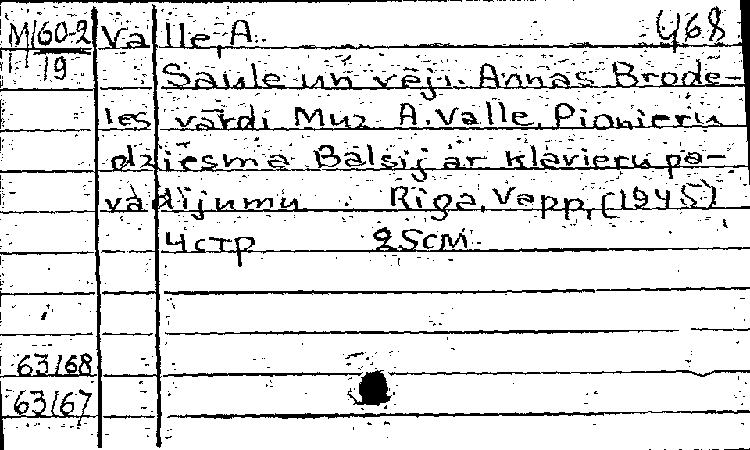 M/60-2 Valle, A. 468
19 Saule un vēji. Annas Brode-
les vārdi Muz A. Valle. Pionieru
dziesma Balsij ar klavieru pa-
vadijumu. Rīgā, Vapp, (1945)
4 стр 25см.
63168
63167